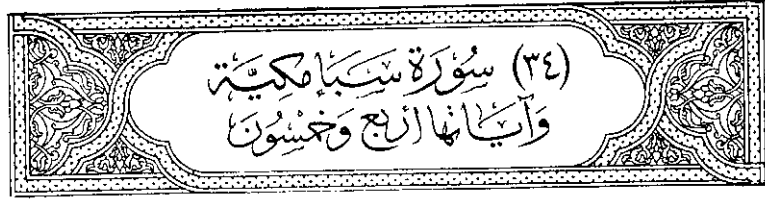 (٣٤) سُورَة سَبَإ مَكيَّة
وَآيَاتهَا أرْبَع وَخمْسُونَ